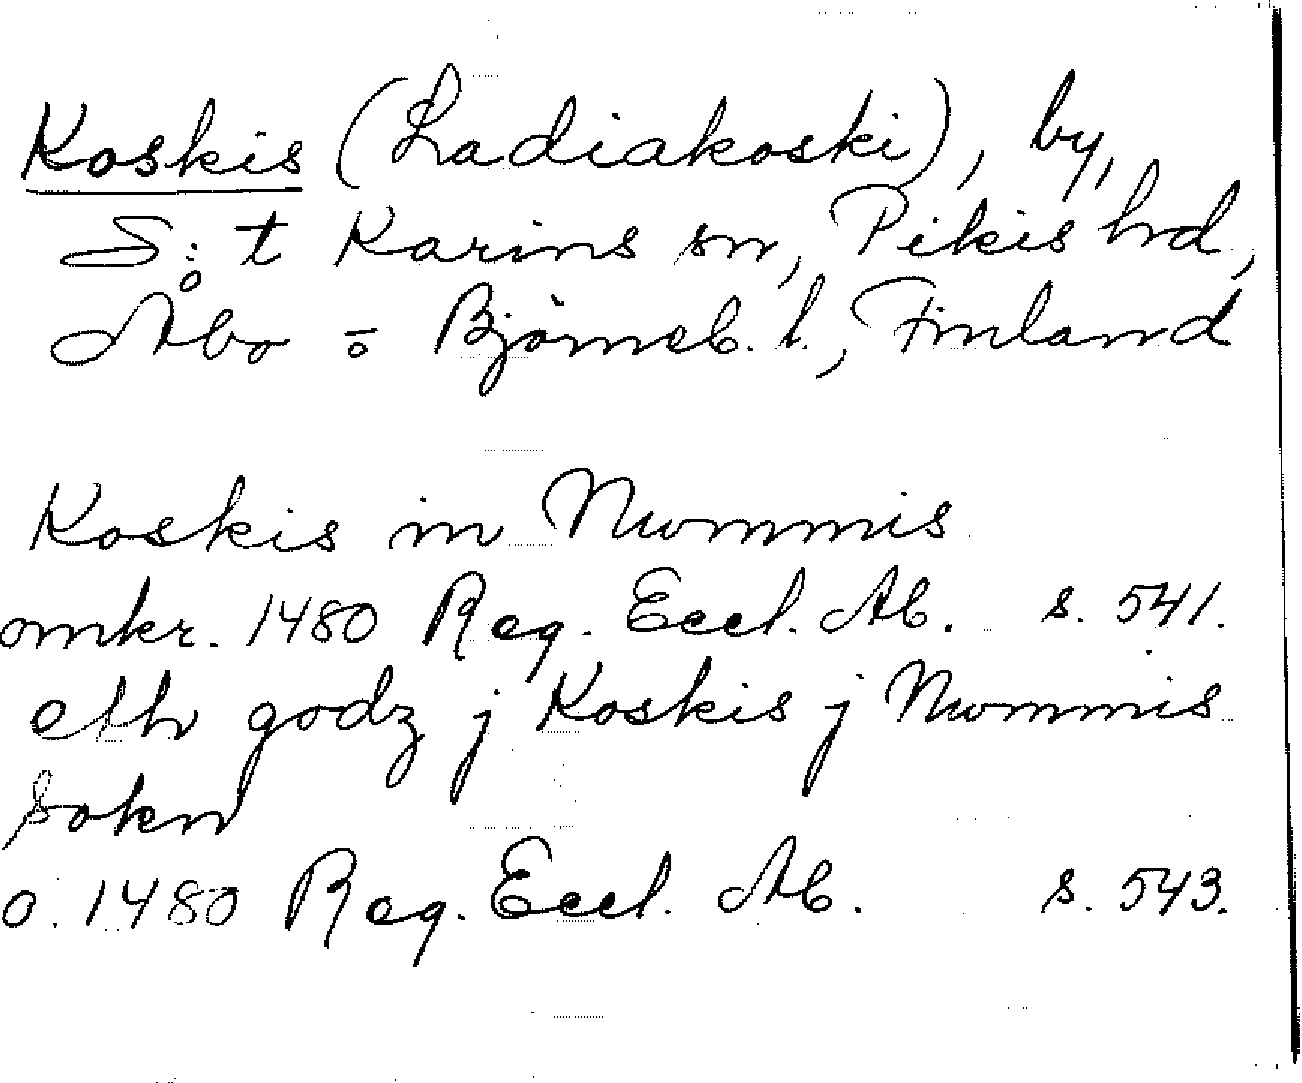 Koskis (Ladiakoski), by,
S:t Karins sn, Pikis hd,
Åbo o Björneb. l., Finland
Koskis in Nwmmis
omkr. 1480 Reg. Eccl. Ab. s. 541.
eth godz j Koskis j Nwmmis
sokn
o. 1480 Reg. Eccl. Ab. s. 543.